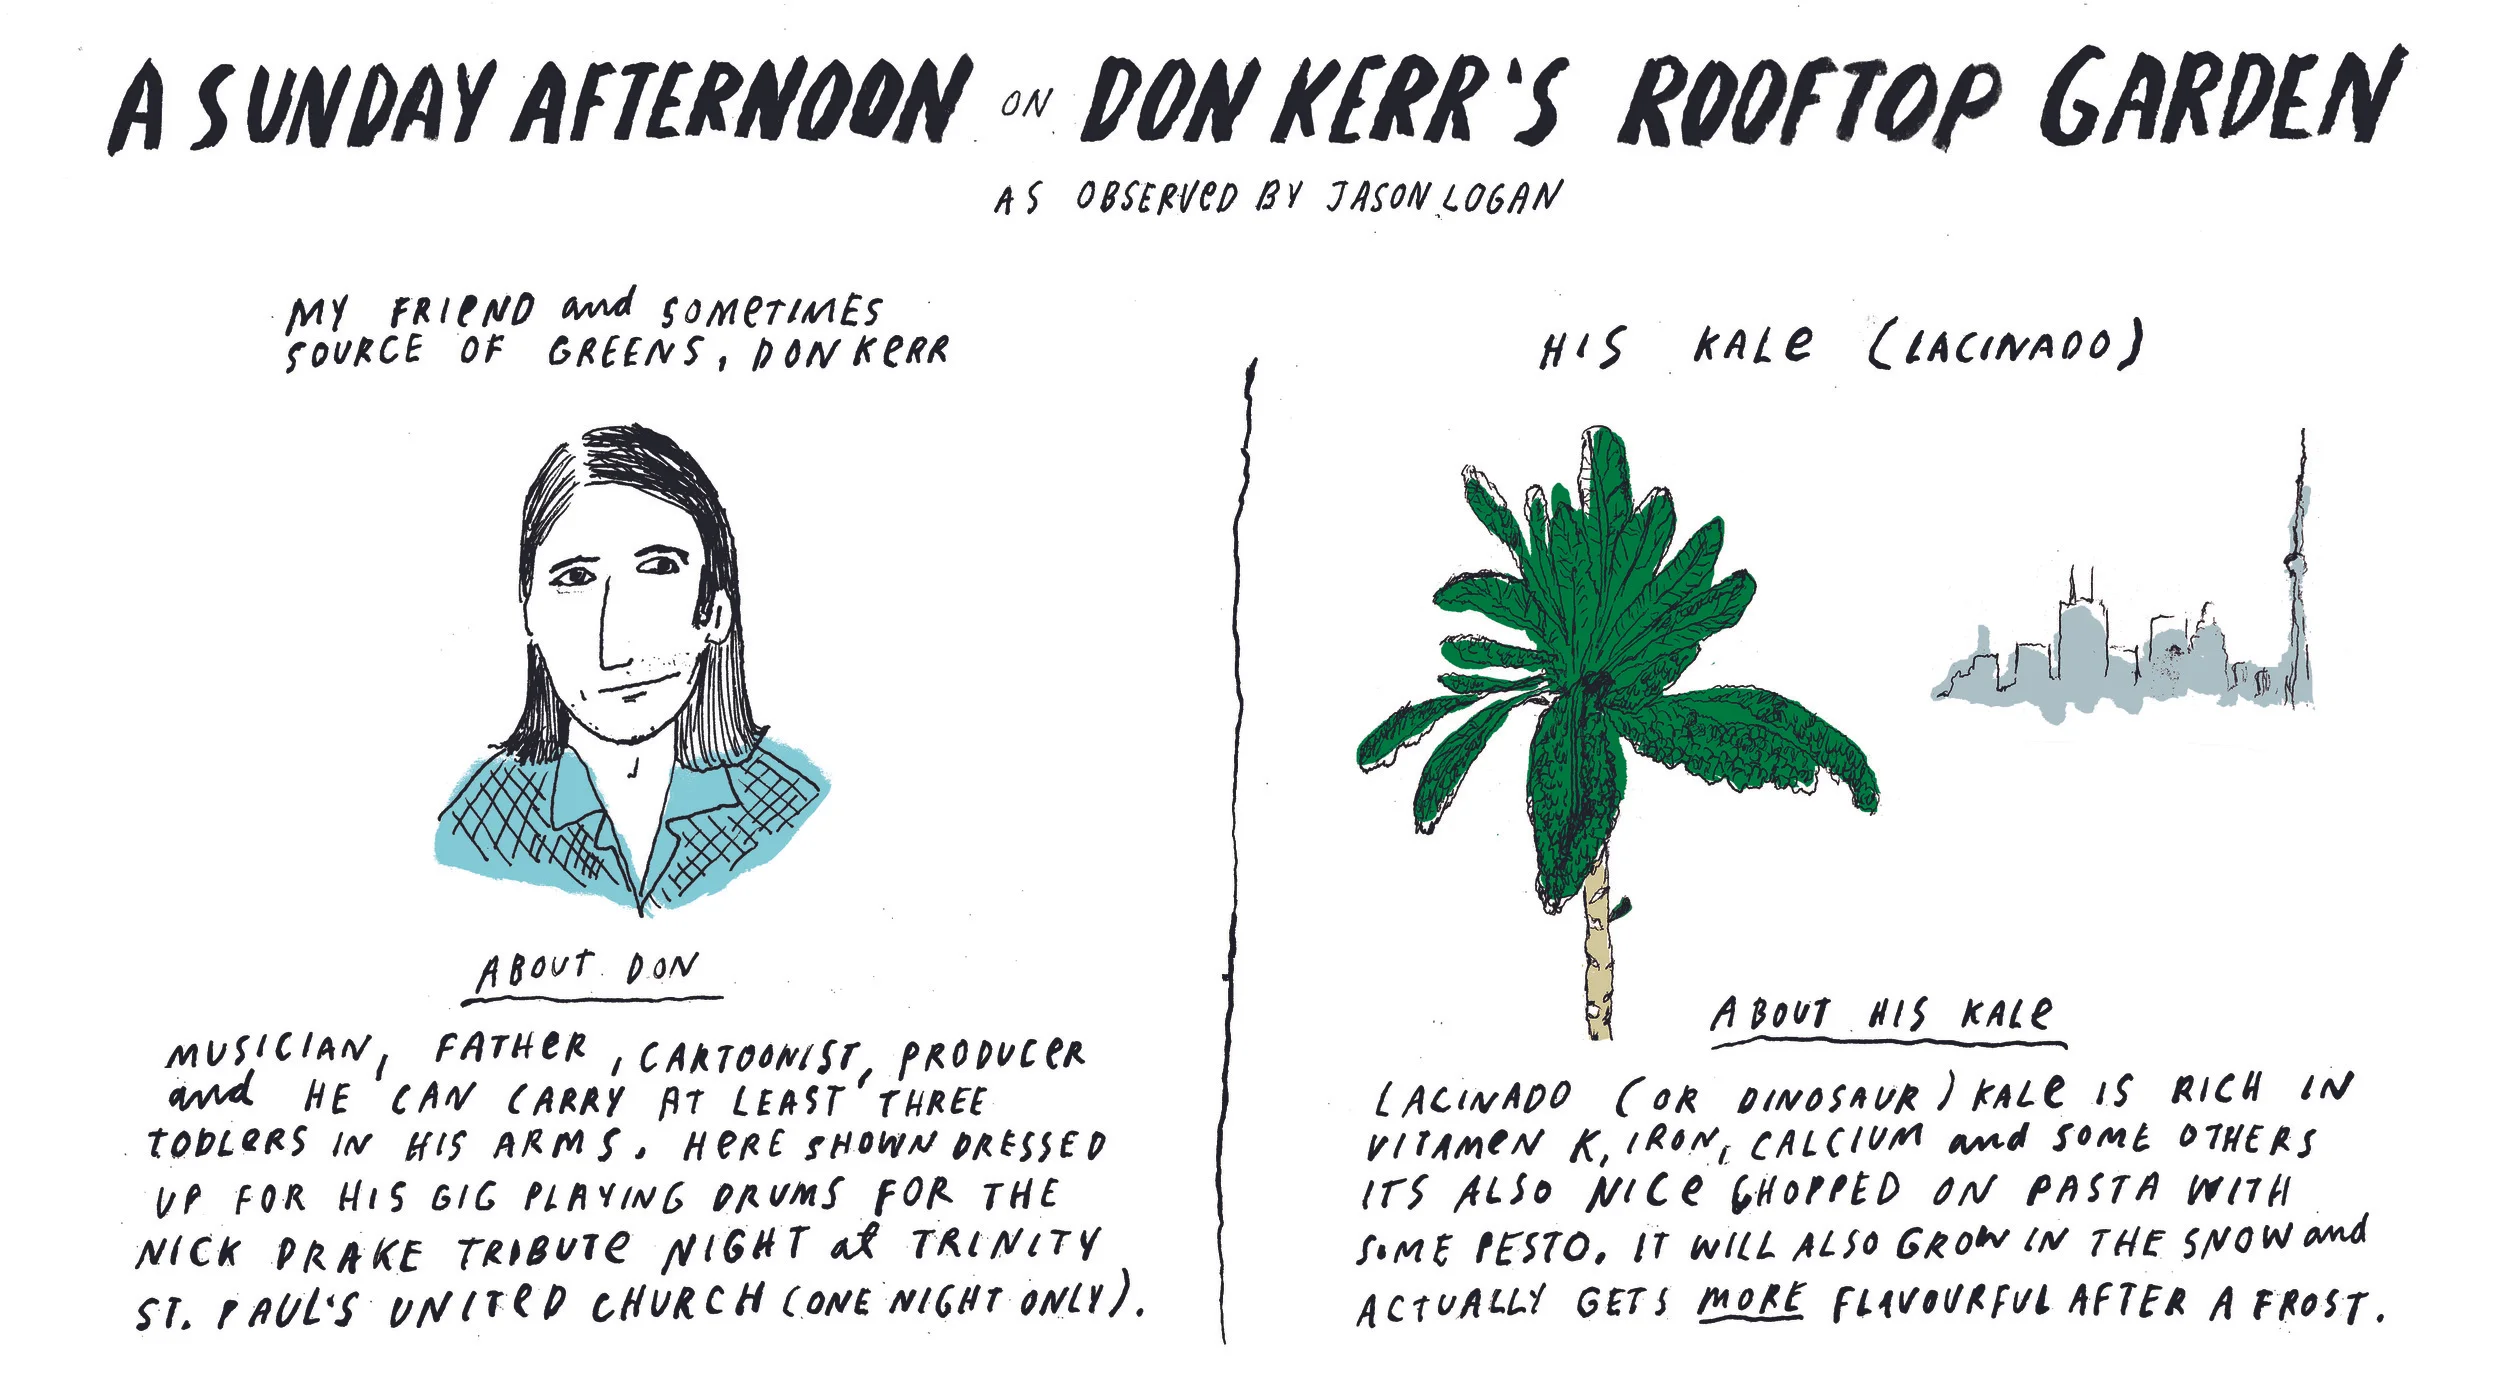 A SUNDAY AFTERNOON ON DON KERR'S ROOFTOP GARDEN
AS OBSERVED BY JASON LOGAN
MY FRIEND and SOMETIMES
SOURCE OF GREENS, DON KERR
ABOUT DON
MUSICIAN, FATHER, CARTOONIST, PRODUCER
and HE CAN CARRY AT LEAST THREE
TODLERS IN HIS ARMS. HERE SHOWN DRESSED
UP FOR HIS GIG PLAYING DRUMS FOR THE
NICK DRAKE TRIBUTE NIGHT at TRINITY
ST. PAUL'S UNITED CHURCH (ONE NIGHT ONLY).
HIS KALE (LACINADO)
ABOUT HIS KALE
LACINADO (OR DINOSAUR) KALE IS RICH IN
VITAMEN K, IRON, CALCIUM and SOME OTHERS
ITS ALSO NICE CHOPPED ON PASTA WITH
SOME PESTO. IT WILL ALSO GROW IN THE SNOW and
ACTUALLY GETS MORE FLAVOURFUL AFTER A FROST.